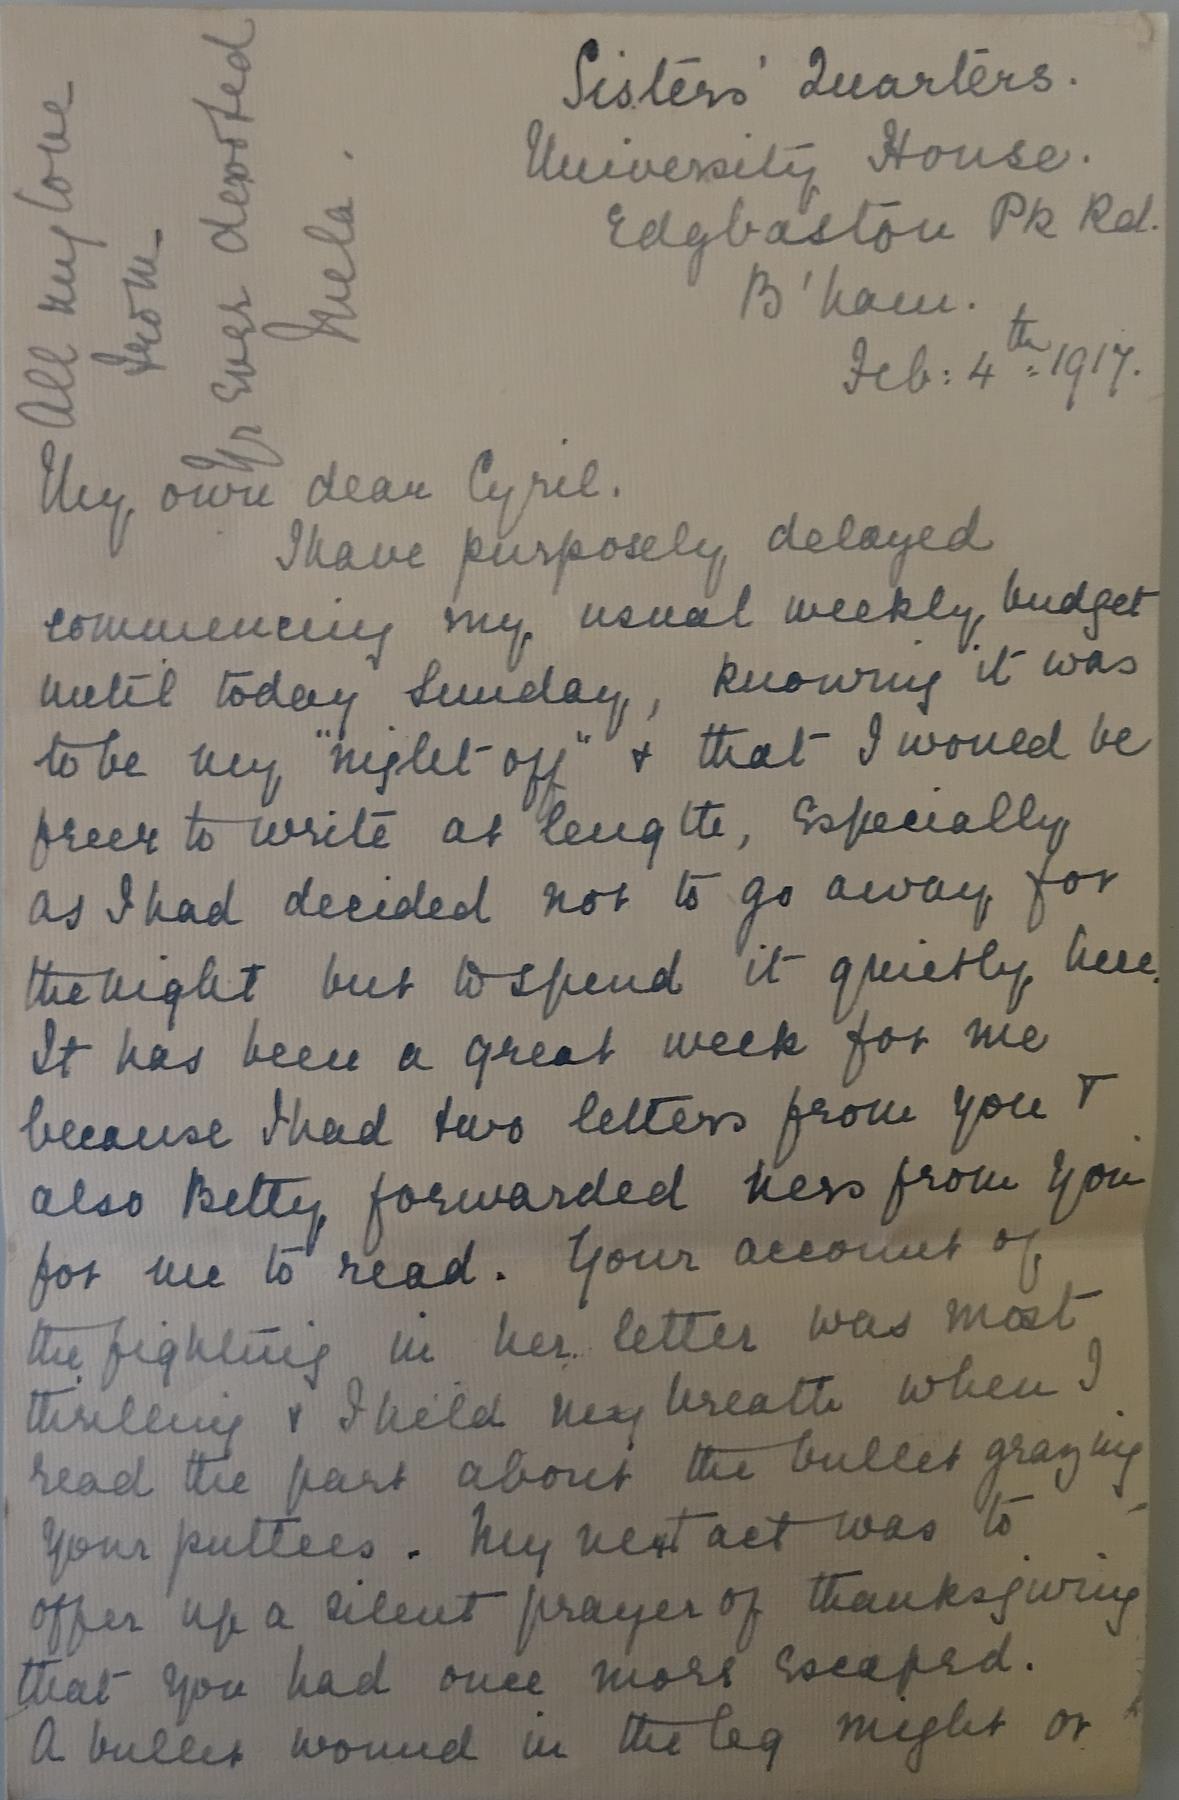 Sisters' Quarters.
University House.
Edgbaston Pk Rd.
B'ham.
Feb: 4th: 1917.
My own dear Cyril.
I have purposely delayed
commencing my usual weekly budget
until today Sunday, knowing it was
to be my "night off" & that I would be
freer to write at length, especially
as I had decided not to go away for
the night but to spend it quietly here.
It has been a great week for me
because I had two letters from you &
also Betty forwarded hers from you
for me to read. Your account of
the fighting in her letter was most
thrilling & I held my breath when I
read the part about the bullet grazing
your puttees. My next act was to
offer up a silent prayer of thanksgiving
that you had once more escaped.
A bullet wound in the leg might or
All my love
from
Yr ever devoted